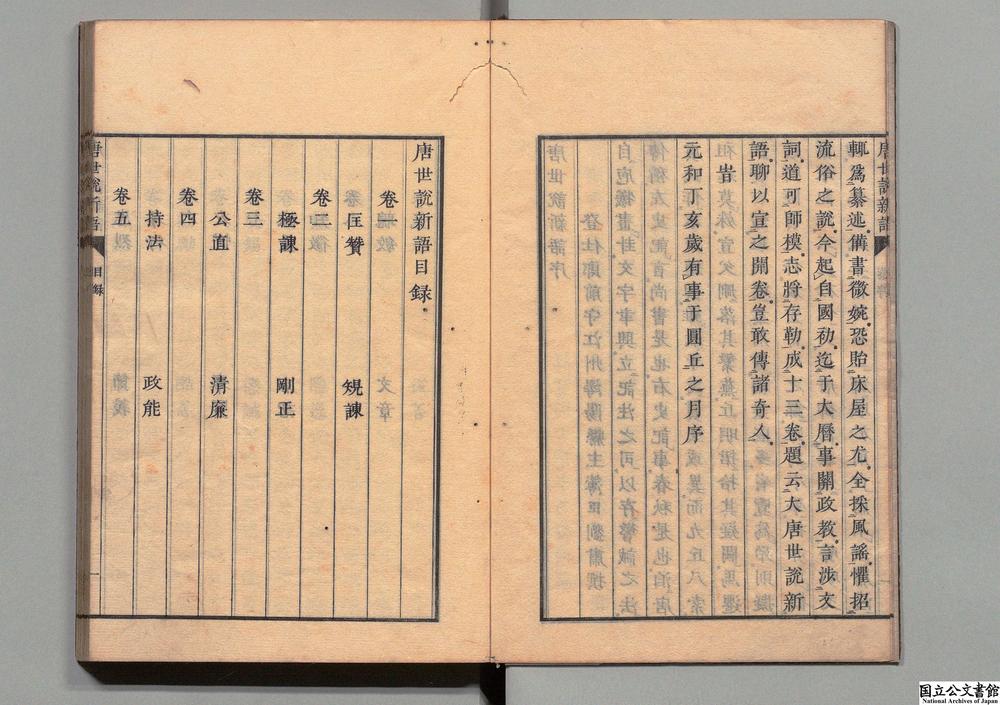 唐世説新語
輒爲纂述備書微婉恐貽床屋之尤全採風謠懼招
流俗之説今起自國初迄于大曆事關政教言涉文
詞道可師模志將存勒成十三卷題云大唐世説新
語聊以宣之開卷豈敢傳諸奇人
元和丁亥歲有事于圓丘之月序
唐世説新語目録
卷一
匡贊 規諌
卷二
極諌 剛正
卷三
公直 清廉
卷四
持法 政能
卷五
唐世説新語 目録 一
国立公文書館
National Archives of Japan